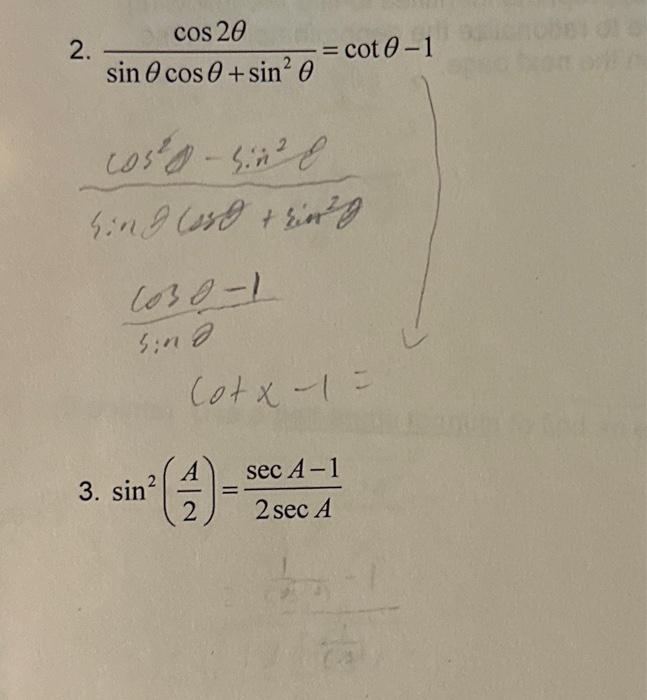 2. cos 2θ / (sin θ cos θ + sin² θ) = cot θ − 1
cos²θ − sin²θ / (sin θ cos θ + sin²θ)
cos θ − 1 / sin θ
cot x − 1 =
3. sin² (A/2) = (sec A − 1) / (2 sec A)